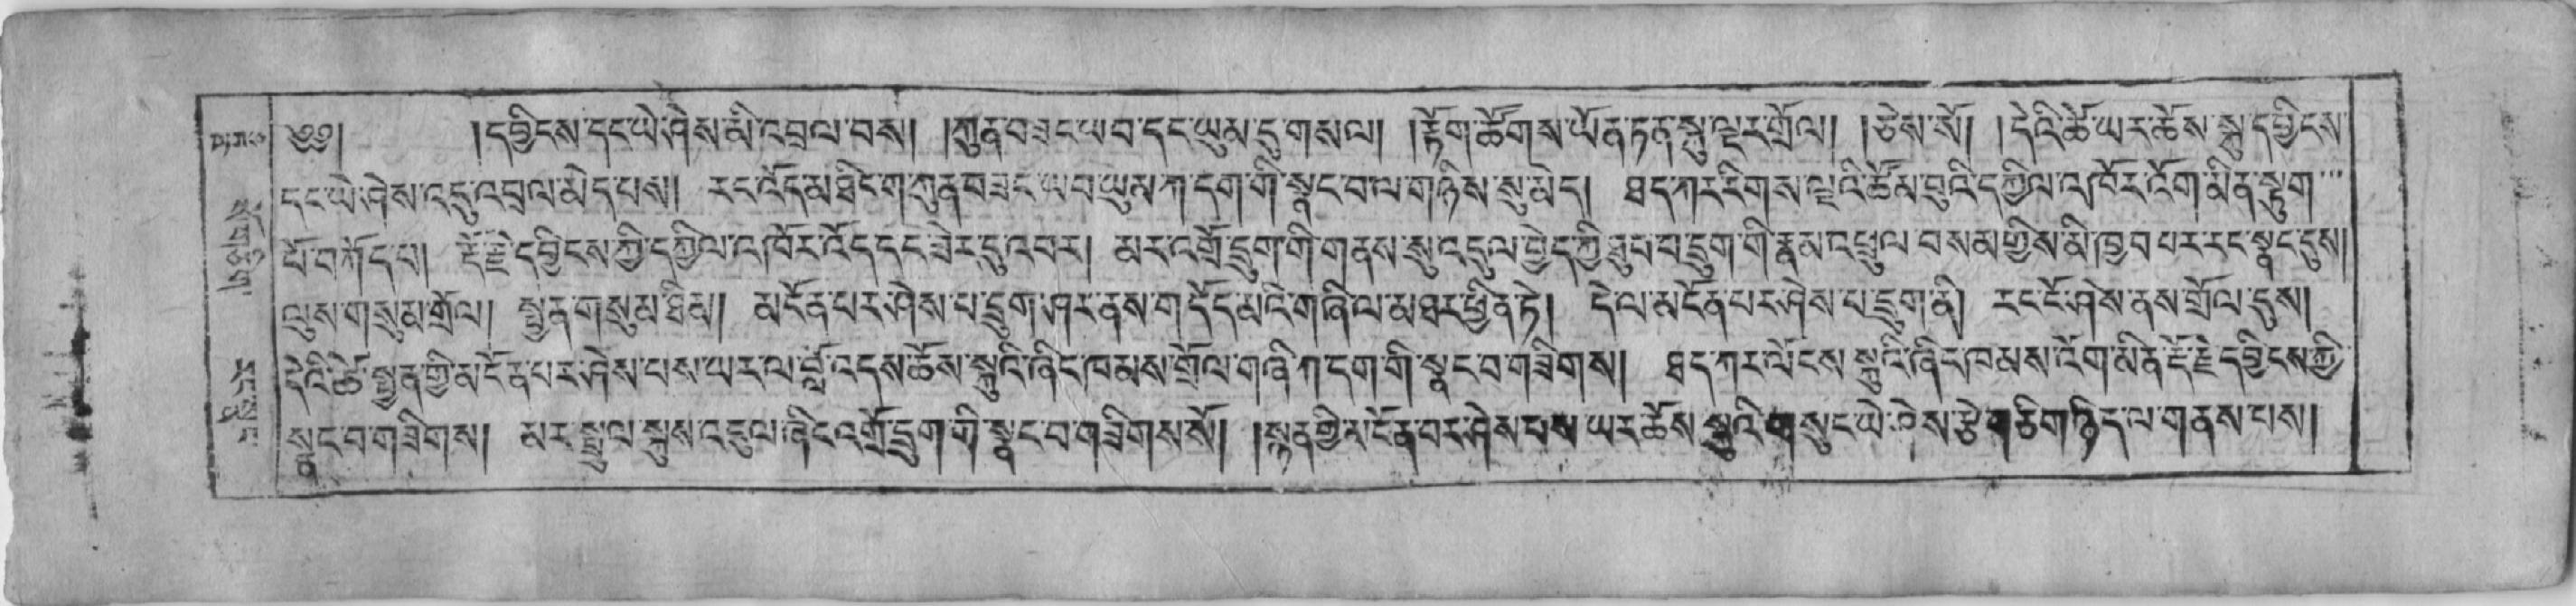 ༄༅། །དབྱིངས་དང་ཡེ་ཤེས་མི་འབྲལ་བས། །ཀུན་བཟང་ཡབ་དང་ཡུམ་དུ་གསལ། །རྟོག་ཚོགས་ཡོན་ཏན་སྐུ་ལྔར་གྲོལ། །ཅེས་སོ། །དེའི་ཚེ་ཡར་ཆོས་སྐུ་དབྱིངས་
དང་ཡེ་ཤེས་འདུ་འབྲལ་མེད་པས། རང་འོད་མཐིང་ག་ཀུན་བཟང་ཡབ་ཡུམ་ཀ་དག་གི་སྣང་བ་ལ་གཉིས་སུ་མེད། ཐད་ཀར་རིགས་ལྔའི་ཚོམ་བུའི་དཀྱིལ་འཁོར་འོག་མིན་སྟུག་
པོ་བཀོད་པ། རྡོ་རྗེ་དབྱིངས་ཀྱི་དཀྱིལ་འཁོར་འོད་དང་ཟེར་དུ་འབར། མར་འགྲོ་དྲུག་གི་གནས་སུ་འདུལ་བྱེད་ཀྱི་ཐུབ་པ་དྲུག་གི་རྣམ་འཕྲུལ་བསམ་གྱིས་མི་ཁྱབ་པར་རང་སྣང་དུས།
ལུས་གསུམ་གྲོལ། སྤྱན་གསུམ་ཐིམ། མངོན་པར་ཤེས་པ་དྲུག་ཤར་ནས་གདོད་མའི་གཞི་ལ་མཐར་ཕྱིན་ཏེ། དེ་ལ་མངོན་པར་ཤེས་པ་དྲུག་ནི། རང་ངོ་ཤེས་ནས་གྲོལ་དུས།
དེའི་ཚེ་སྤྱན་གྱི་མངོན་པར་ཤེས་པས་ཡར་ལ་བློ་འདས་ཆོས་སྐུའི་ཞིང་ཁམས་གྲོལ་གཞི་ཀ་དག་གི་སྣང་བ་གཟིགས། ཐད་ཀར་ལོངས་སྐུའི་ཞིང་ཁམས་འོག་མིན་རྡོ་རྗེ་དབྱིངས་ཀྱི་
སྣང་བ་གཟིགས། མར་སྤྲུལ་སྐུས་འདུལ་ཞིང་འགྲོ་དྲུག་གི་སྣང་བ་གཟིགས་སོ། །སྙན་གྱི་མངོན་པར་ཤེས་པས་ཡར་ཆོས་སྐུའི་གསུང་ཡེ་ཤེས་ཅེ་གཅིག་ཉིད་ལ་གནས་པས།